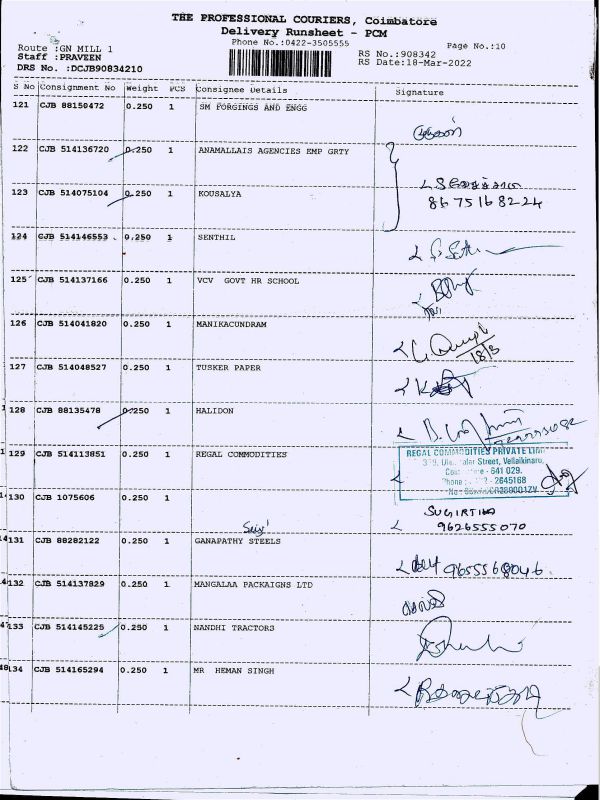 THE PROFESSIONAL COURIERS, Coimbatore
Delivery Runsheet - PCM
Phone No.:0422-3505555
Page No.:10
Route :GN MILL 1
Staff :PRAVEEN
DRS No. :DCJB90834210
RS No.:908342
RS Date:18-Mar-2022
S No Consignment No Weight PCS Consignee Details Signature
121 CJB 88150472 0.250 1 SM FORGINGS AND ENGG
122 CJB 514136720 0.250 1 ANAMALLAIS AGENCIES EMP GRTY
123 CJB 514075104 0.250 1 KOUSALYA
8675168224
124 CJB 514146553 0.250 1 SENTHIL
125 CJB 514137166 0.250 1 VCV GOVT HR SCHOOL
126 CJB 514041820 0.250 1 MANIKACUNDRAM
18/3
127 CJB 514048527 0.250 1 TUSKER PAPER
128 CJB 88135478 0.250 1 HALIDON
129 CJB 514113851 0.250 1 REGAL COMMODITIES
REGAL COMMODITIES PRIVATE LIMI
Street, Vellaikinaru,
- 641 029.
2645168
130 CJB 1075606 0.250 1
SUGIRTHA
9626555070
131 CJB 88282122 0.250 1 GANAPATHY STEELS
132 CJB 514137829 0.250 1 MANGALAA PACKAIGNS LTD
133 CJB 514145225 0.250 1 NANDHI TRACTORS
134 CJB 514165294 0.250 1 MR HEMAN SINGH